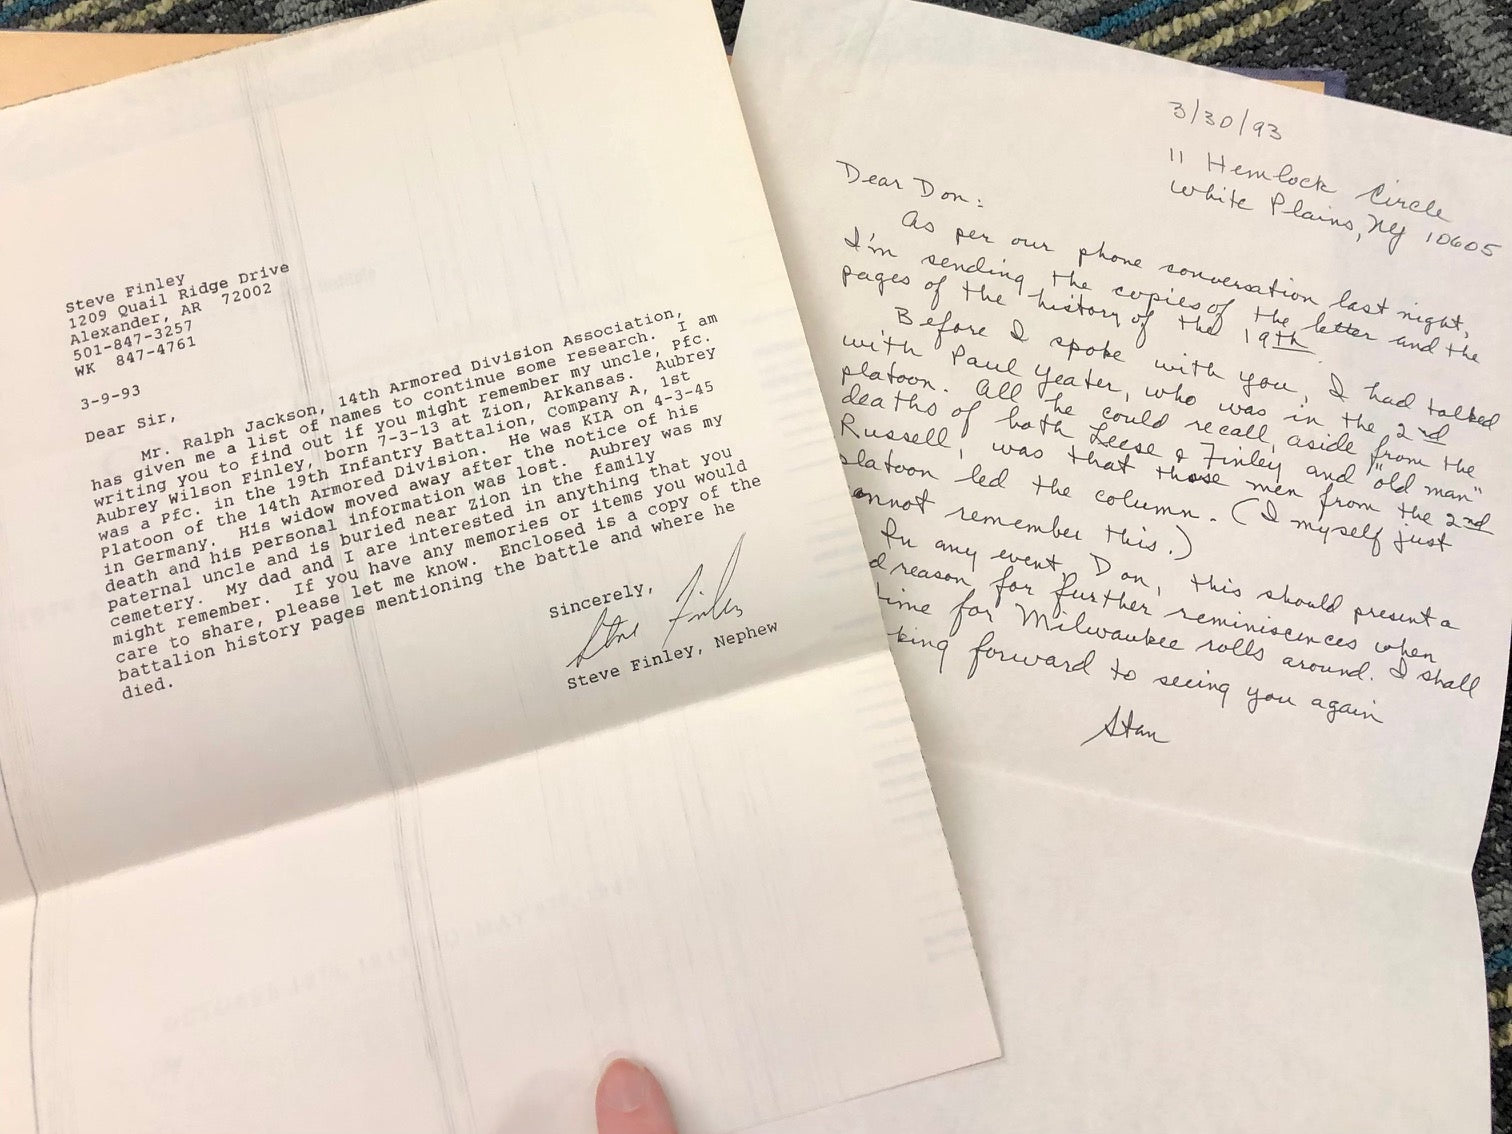 Steve Finley
1209 Quail Ridge Drive
Alexander, AR  72002
501-847-3257
WK  847-4761
3-9-93
Dear Sir,
Mr. Ralph Jackson, 14th Armored Division Association,
has given me a list of names to continue some research.  I am
writing you to find out if you might remember my uncle, Pfc.
Aubrey Wilson Finley, born 7-3-13 at Zion, Arkansas.  Aubrey
was a Pfc. in the 19th Infantry Battalion, Company A, 1st
Platoon of the 14th Armored Division.  He was KIA on 4-3-45
in Germany.  His widow moved away after the notice of his
death and his personal information was lost.  Aubrey was my
paternal uncle and is buried near Zion in the family
cemetery.  My dad and I are interested in anything that you
might remember.  If you have any memories or items you would
care to share, please let me know.  Enclosed is a copy of the
battalion history pages mentioning the battle and where he
died.
Sincerely,
Steve Finley
Steve Finley, Nephew
3/30/93
11 Hemlock Circle
White Plains, NY 10605
Dear Don:
As per our phone conversation last night,
I'm sending the copies of the letter and the
pages of the history of the 19th.
Before I spoke with you, I had talked
with Paul Yeater, who was in the 2nd
platoon. All he could recall, aside from the
deaths of both Leese & Finley and "old man"
Russell, was that those men from the 2nd
platoon led the column. (I myself just
cannot remember this.)
In any event, Don, this should present a
reason for further reminiscences when
time for Milwaukee rolls around. I shall
king forward to seeing you again
Stan